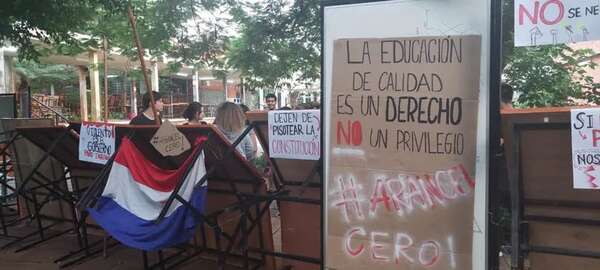 NO SE NE
LA EDUCACIÓN
DE CALIDAD
ES UN DERECHO
NO UN PRIVILEGIO
#ARANCEL
CERO!
DEJEN DE
PISOTEAR LA
CONSTITUCIÓN
#ARANCEL
CERO!
SI
NOS